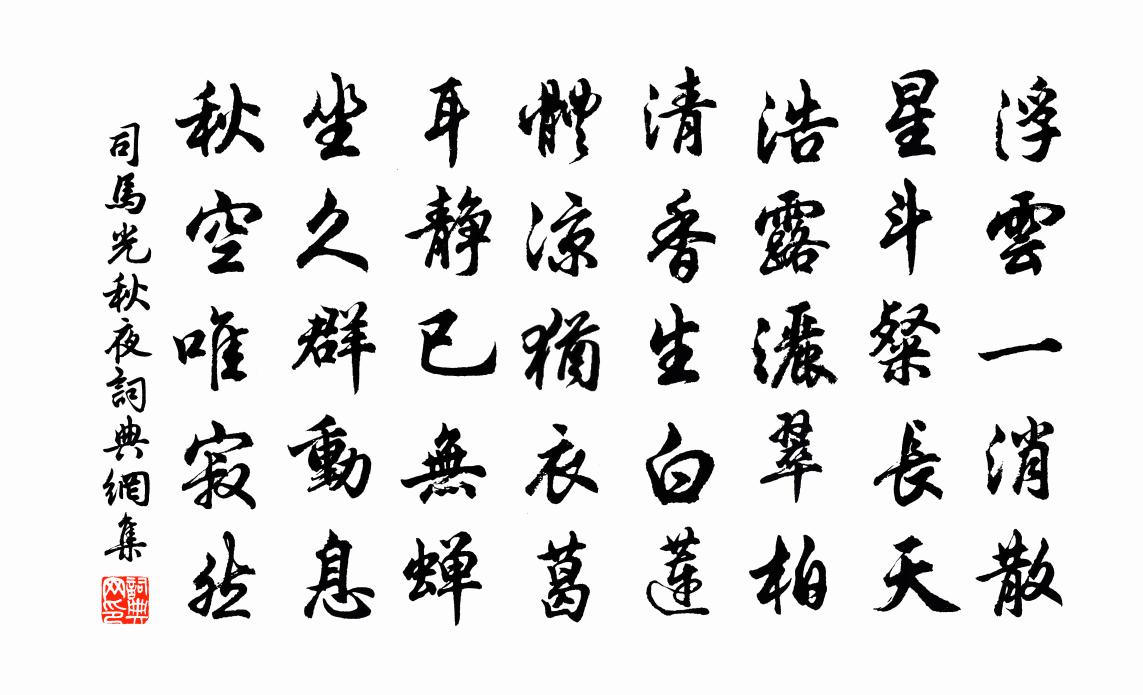 浮雲一消散
星斗粲長天
浩露灑翠柏
清香生白蓮
體涼猶衣葛
耳靜已無蟬
坐久群動息
秋空唯寂然
司馬光秋夜詞典網集
詞典网印